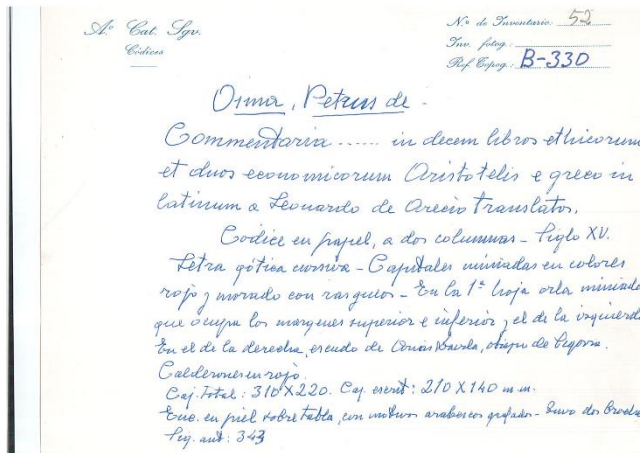 Aº Cat. Sgv.
Códices
N.º de Inventario: 52
Inv. fotog.:
Ref. Topog.: B-330
Osma, Petrus de -
Commentaria ...... in decem libros ethicorum
et duos economicorum Aristotelis e greco in
latinum a Leonardo de Arecio translatos.
Codice en papel, a dos columnas - Siglo XV.
Letra gótica cursiva - Capitales miniadas en colores
rojo y morado con rasgueos - En la 1ª hoja orla miniada
que ocupa los margenes superior e inferior y el de la izquierda
En el de la derecha, escudo de Arias Davila, obispo de Segovia.
Calderones en rojo.
Caj. Total: 310 X 220. Caj. escrit: 210 X 140 m.m.
Enc. en piel sobre tabla, con motivos arabescos grafados - tuvo dos broches
Sig. ant: 343